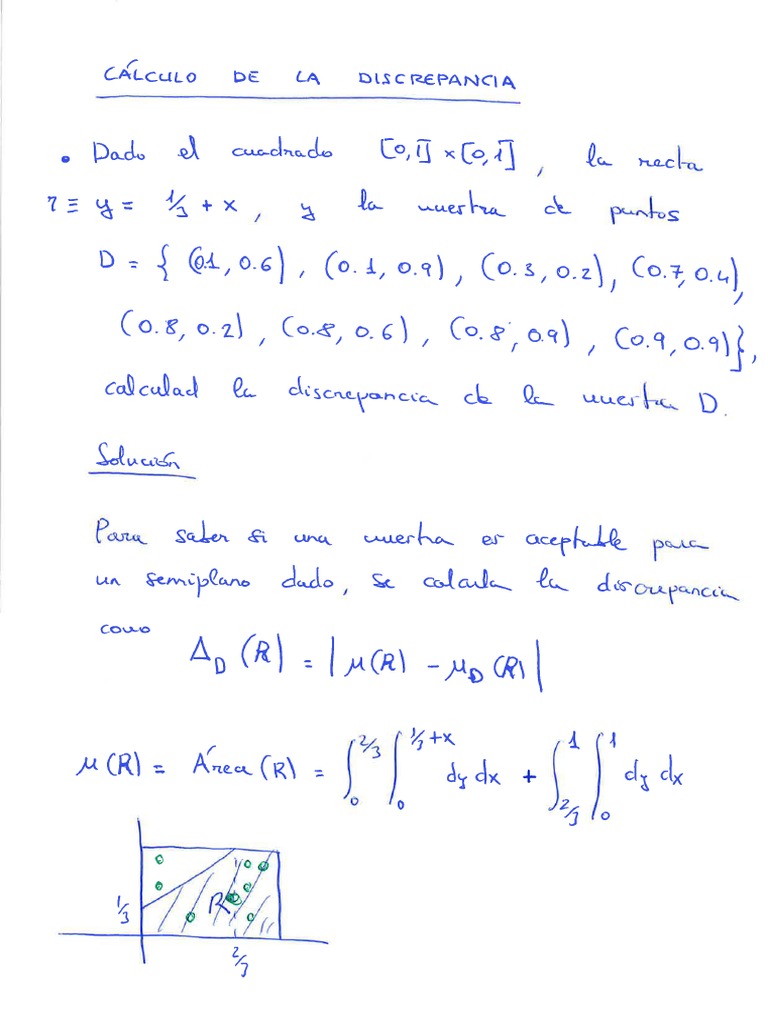 CÁLCULO DE LA DISCREPANCIA
• Dado el cuadrado [0,1]×[0,1], la recta
r ≡ y = 1/3 + x, y la muestra de puntos
D = { (0.1, 0.6), (0.1, 0.9), (0.3, 0.2), (0.7, 0.4),
(0.8, 0.2), (0.8, 0.6), (0.8, 0.9), (0.9, 0.9)},
calculad la discrepancia de la muestra D.
Solución
Para saber si una muestra es aceptable para
un semiplano dado, se calcula la discrepancia
como
Δ_D (R) = | μ(R) - μ_D (R) |
μ(R) = Área(R) = ∫_0^{2/3} ∫_0^{1/3+x} dy dx + ∫_{2/3}^1 ∫_0^1 dy dx
R
1/3
2/3